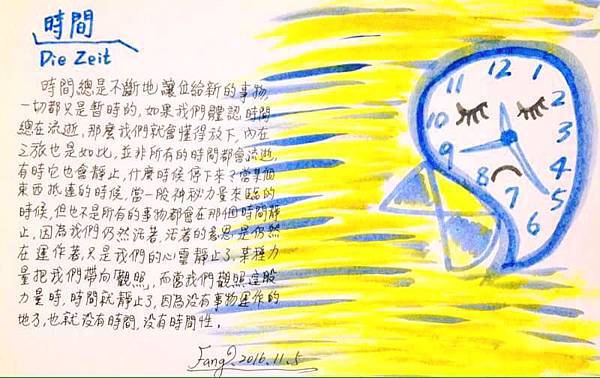 時間
Die Zeit
時間總是不斷地讓位給新的事物,
一切都只是暫時的,如果我們體認時間
總在流逝,那麼我們就會懂得放下,內在
之旅也是如此,並非所有的時間都會流逝,
有時它也會靜止,什麼時候停下來?當某個
東西抵達的時候,當一股神秘力量來臨的
時候,但也不是所有的事物都會在那個時間靜
止,因為我們仍然活著,活著的意思是仍然
在運作著,只是我們的心靈靜止了,某種力
量把我們帶向「觀照」,而當我們觀照這股
力量時,時間就靜止了,因為沒有事物運作的
地方,也就沒有時間,沒有時間性。
Fang Q. 2016.11.5
11 12 1
10 2
9 3
8 4
7 5
6